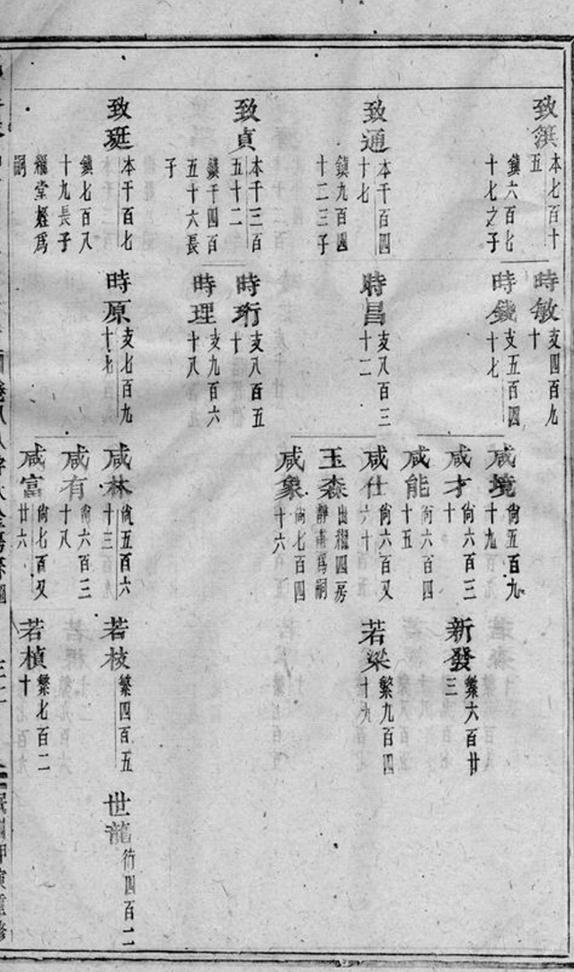 致淇
本七百十
五
鎮六百七
十七之子
致通
本千百四
十七
鎮九百四
十二三子
致貞
本千三百
五十二
鎮千四百
五十六長
子
致珽
本千百七
鎮七百又
十九長子
福堂
為
嗣
時敏
支四百九
十
時錢
支五百四
十七
時昌
支八百三
十二
時珩
支八百五
十
時理
支九百六
十八
時原
支七百九
十七
咸境
尙五百九
十九
咸才
尙六百三
十
咸能
尙六百四
十五
咸仕
尙六百又
六十
玉森
出紹四房
靜甫爲嗣
咸象
尙七百四
十六
咸林
尙五百六
十三
咸有
尙六百三
十八
咸富
尙七百又
廿六
新發
繁六百廿
三
若梁
繁九百四
十九
若枝
繁四百五
若楨
繁七百二
十
世龍
衍四百二二